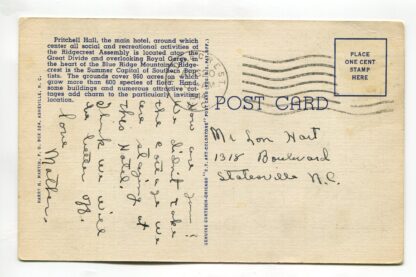 Pritchell Hall, the main hotel, around which
center all social and recreational activities of
the Ridgecrest Assembly is located atop the
Great Divide and overlooking Royal Gorge, in
the heart of the Blue Ridge Mountains. Ridge-
crest is the Summer Capital of Southern Bap-
tists. The grounds cover 950 acres on which
grow more than 600 species of flora. Hand-
some buildings and numerous attractive cot-
tages add charm to the particularly inviting
location.
PLACE
ONE CENT
STAMP
HERE
POST CARD
Mr Lon Hart
1318 Boulevard
Statesville N.C.
How are you?
We didn't take
the cottage we
are staying at
this Hotel.
I think we will
be better off.
Love
Mother.
HARRY H. MARTIN, P. O. BOX 324, ASHEVILLE, N. C.
GENUINE CURTEICH-CHICAGO "C.T. ART-COLORTONE" POST CARD (REG. U.S. PAT. OFF.)